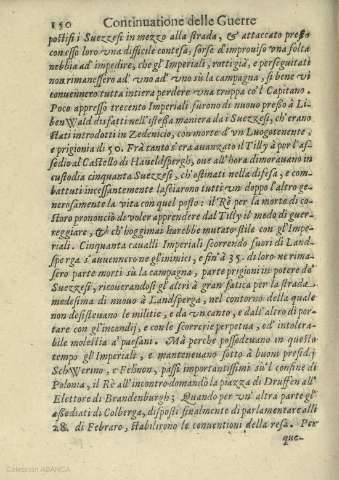 150 Continuatione delle Guerre
postisi i Suezzesi in mezzo alla strada, & attaccato presto
con esso loro vna difficile contesa, sorse d'improuiso vna folta
nebbia ad' impedire, che gl' Imperiali, rotti già, e perseguitati
non rimanessero ad' vno ad' vno sù la campagna, si bene vi
conuennero tutta intiera perdere vna truppa co'l Capitano.
Poco appresso trecento Imperiali furono di nuouo presso à Li-
ben Wald disfatti nell'istessa maniera da i Suezzesi, ch'erano
stati introdotti in Zedenicio, con morte d'vn Luogotenente,
e prigionia di 50. Frà tanto s'era auanzato il Tilly à por l'as-
sedio al Castello di Haueldspergh, oue all'hora dimorauano in
custodia cinquanta Suezzesi, ch'ostinati nella difesa, e com-
battuti incessantemente lasciarono tutti vn doppo l'altro ge-
nerosamente la vita con quel posto: il Rè per la morte di co-
storo prononciò di voler apprendere dal Tilly il modo di guer-
reggiare, & ch'hoggimai harebbe mutato stile con gl'Impe-
riali. Cinquanta caualli Imperiali scorrendo fuori di Land-
sperga s'auuennero ne gl'inimici, e fin'à 35. di loro ne rima-
sero parte morti sù la campagna, parte prigioni in potere de'
Suezzesi, ricouerandosi gl'altri à gran fatica per la strada
medesima di nuouo à Landsperga, nel contorno della quale
non desisteuano le militie, e da vn canto, e dall'altro di por-
tare con gl'incendij, e con le scorrerie perpetua, ed' intolera-
bile molestia a' paesani. Mà perche possedeuano in questo
tempo gl'Imperiali, e manteneuano sotto à buoni presidij
SchWerino, e Felinon, passi importantissimi sù'l confine di
Polonia, il Rè all'incontro domandò la piazza di Druffen all'
Elettore di Brandenburgh; Quando per vn'altra parte gl'
assediati di Colberga, disposti finalmente di parlamentare alli
28. di Febraro, stabilirono le conuentioni della resa. Per
que-
Colección ABANCA